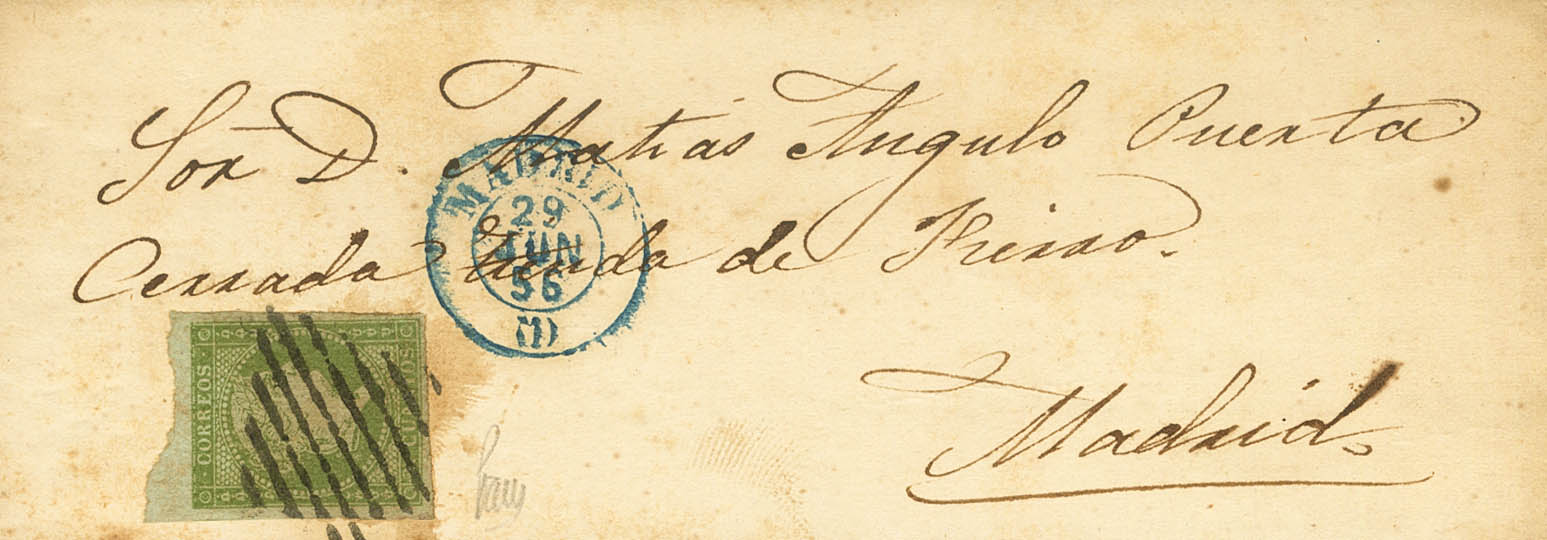 Sor D. Matias Angulo Puerta
Cerrada tienda de Hierro.
Madrid
MADRID
29
JUN
56
(1)
CORREOS
CUARTOS